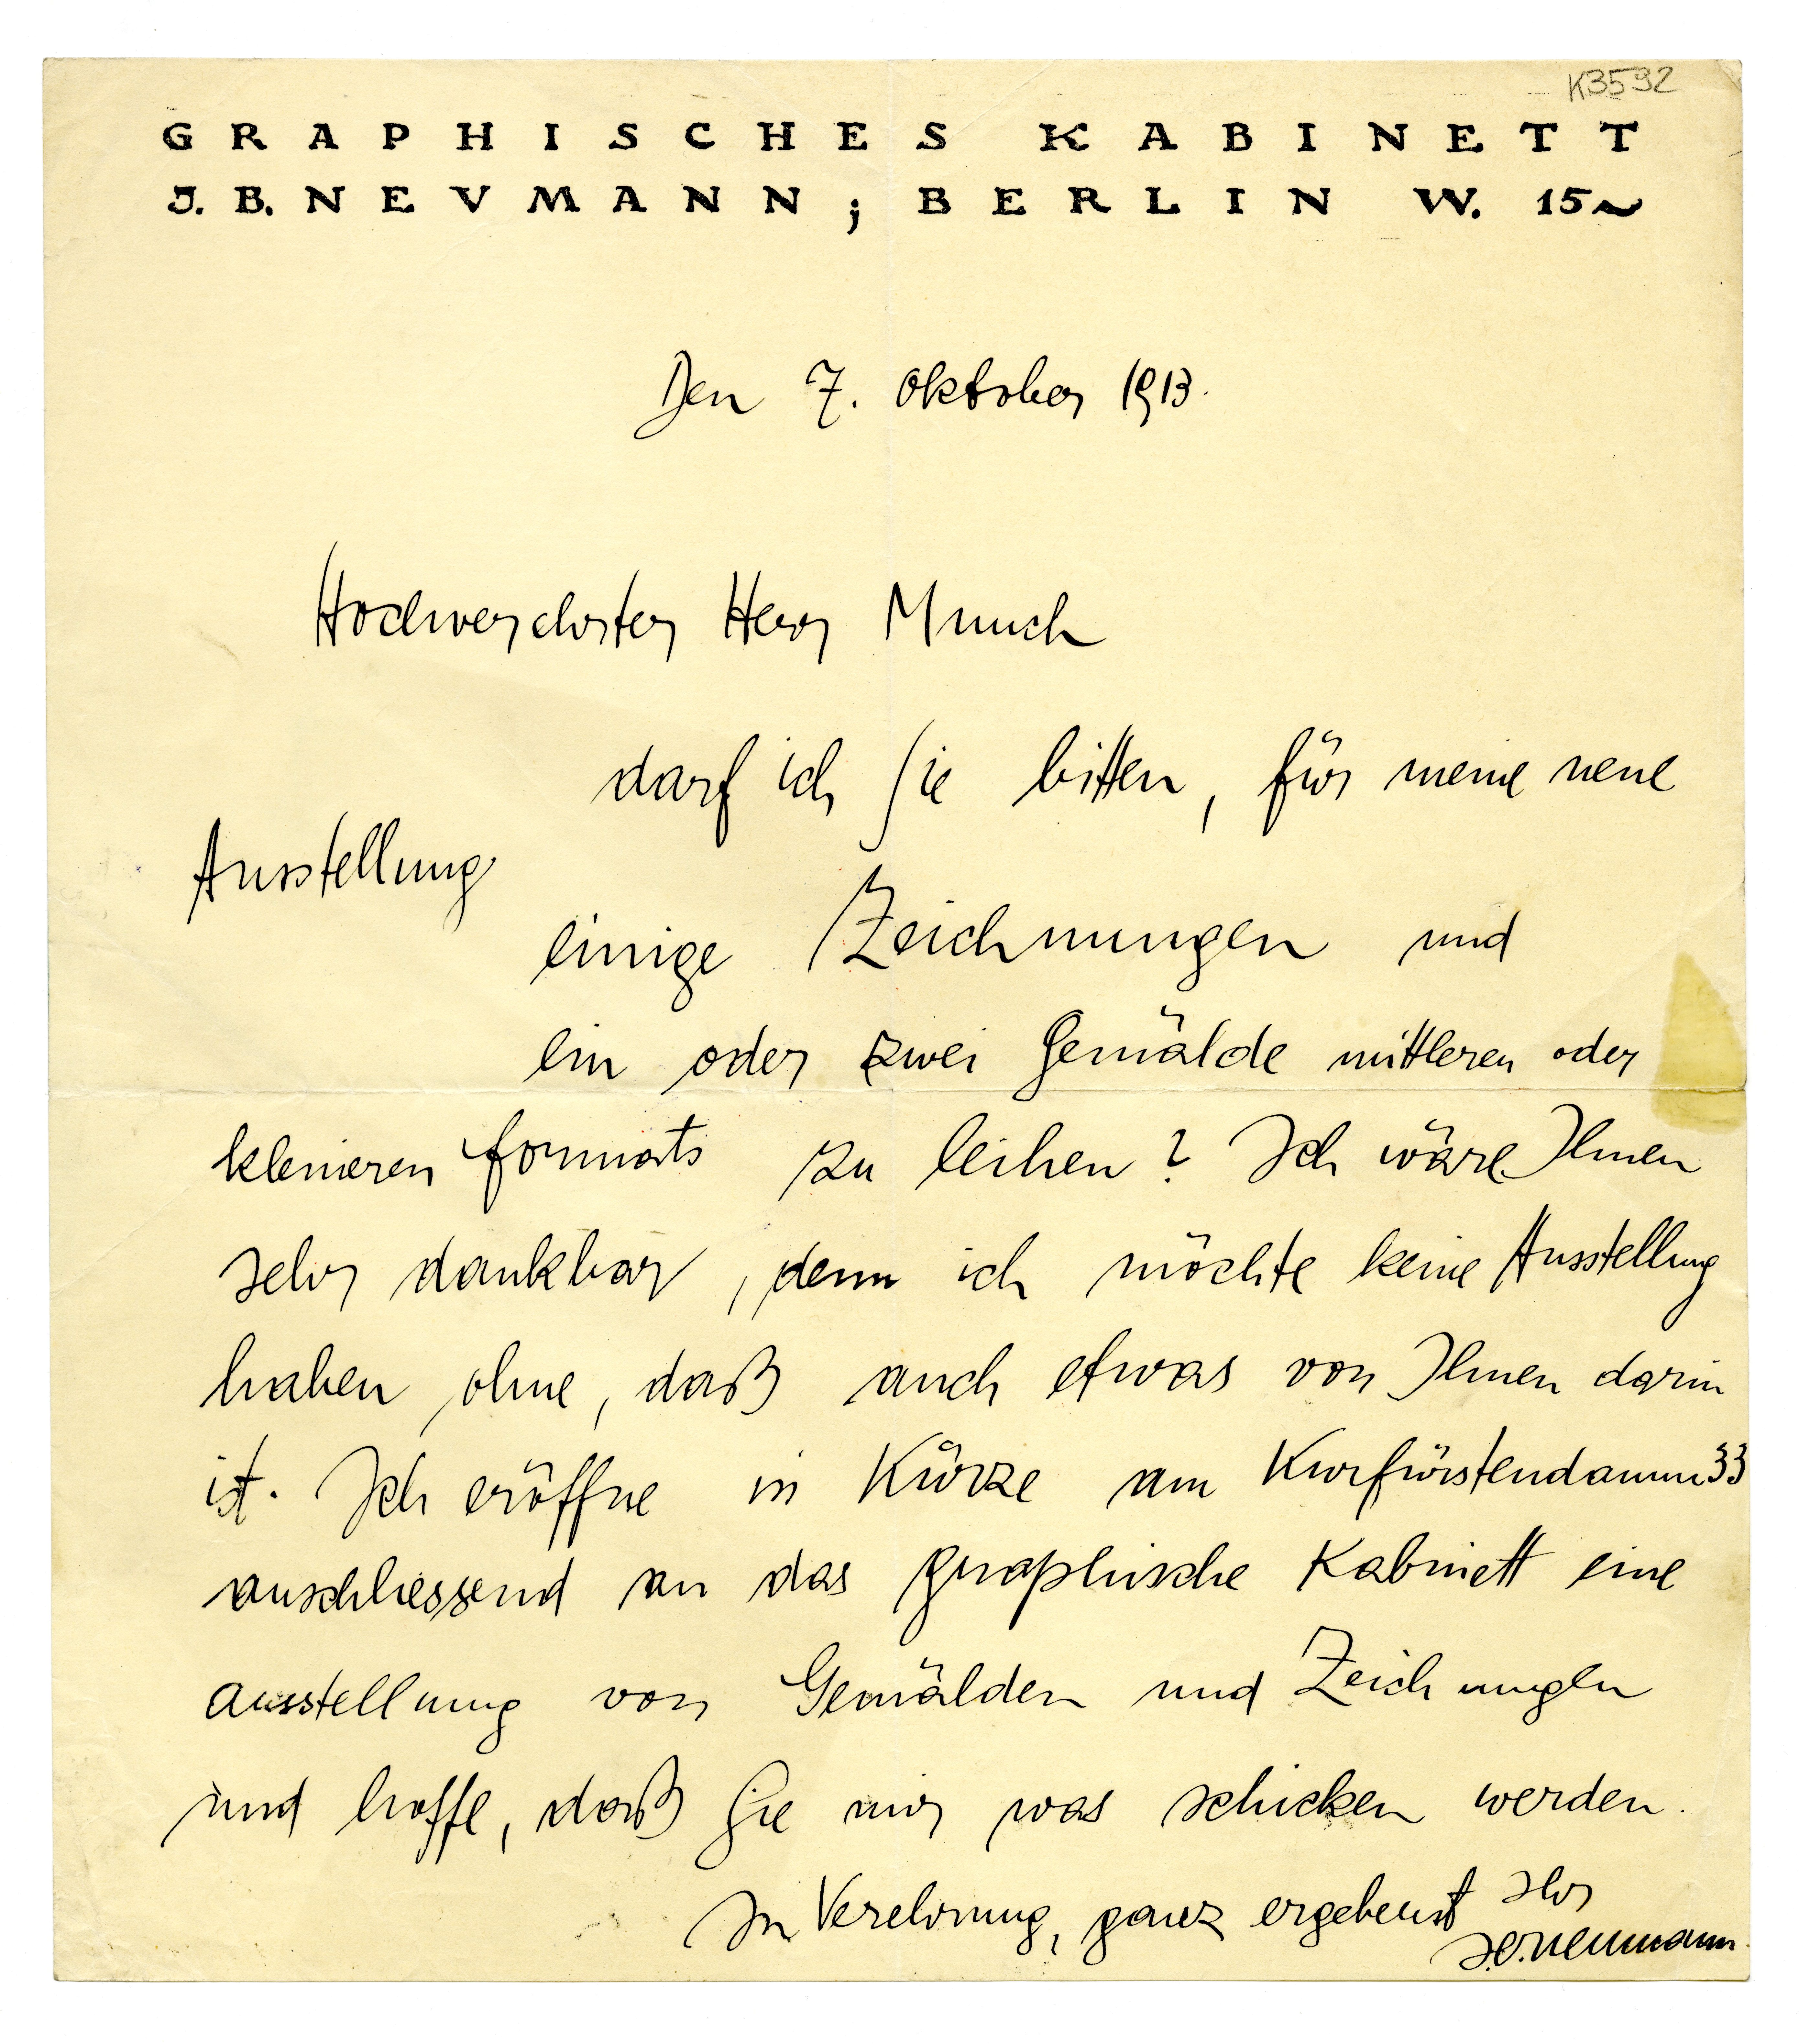 K3592
GRAPHISCHES KABINETT
J. B. NEVMANN ; BERLIN W. 15~
Den 7. Oktober 1913.
Hochverehrter Herr Munch
darf ich Sie bitten, für meine neue
Ausstellung
einige Zeichnungen und
ein oder zwei Gemälde mittleren oder
kleineren formats zu leihen? Ich wäre Ihnen
sehr dankbar, denn ich möchte keine Ausstellung
haben ohne, daß auch etwas von Ihnen darin
ist. Ich eröffne in Kürze am Kurfürstendamm 33
anschliessend an das graphische Kabinett eine
ausstellung von Gemälden und Zeichnungen
und hoffe, daß Sie mir was schicken werden.
In Verehrung, ganz ergebenst Ihr
J.B. Neumann.